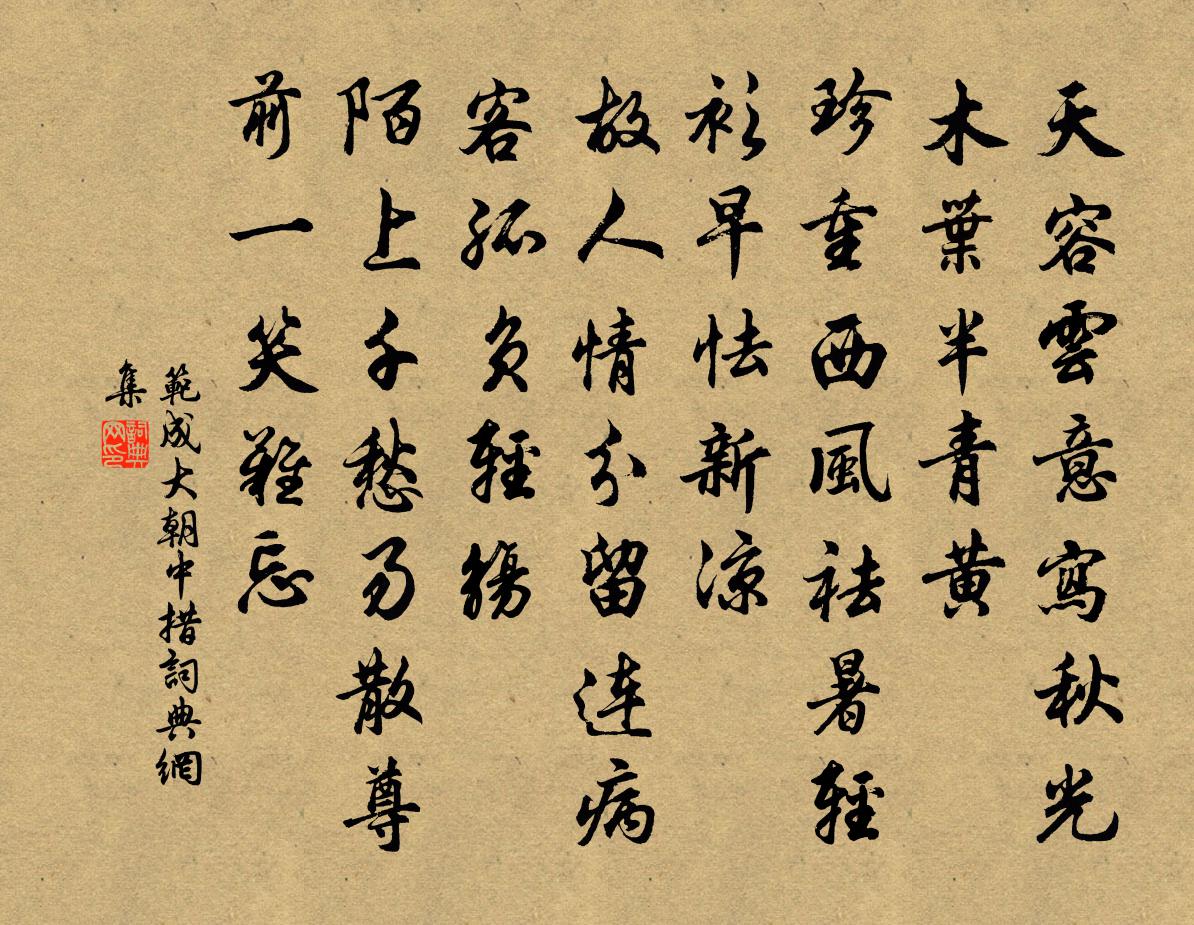 天容雲意寫秋光
木葉半青黃
珍重西風祛暑輕
衫早怯新涼
故人情分留連病
客孤負輕觴
陌上千愁易散尊
前一笑難忘
範成大朝中措詞典網
集
詞典
网印